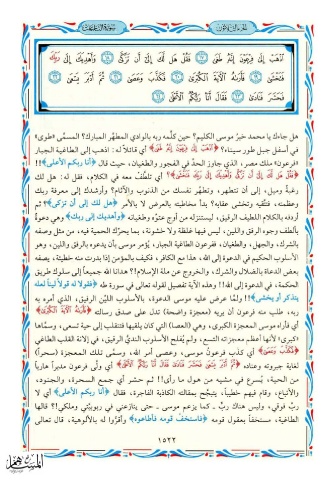 الجزء الثلاثون
سورة النازعات
اذْهَبْ إِلَىٰ فِرْعَوْنَ إِنَّهُ طَغَىٰ ١٧ فَقُلْ هَل لَّكَ إِلَىٰ أَن تَزَكَّىٰ ١٨ وَأَهْدِيَكَ إِلَىٰ رَبِّكَ
فَتَخْشَىٰ ١٩ فَأَرَاهُ الْآيَةَ الْكُبْرَىٰ ٢٠ فَكَذَّبَ وَعَصَىٰ ٢١ ثُمَّ أَدْبَرَ يَسْعَىٰ ٢٢
فَحَشَرَ فَنَادَىٰ ٢٣ فَقَالَ أَنَا رَبُّكُمُ الْأَعْلَىٰ ٢٤
هل جاءك يا محمد خبرُ موسى الكليم؟ حين كلَّمه ربه بالوادي المطهَّر المبارك؟ المسمَّى «طوى»
في أسفل جبل طور سيناء؟ ﴿اذهب إلى فرعون إنه طغى﴾ أي قائلاً له: اذهب إلى الطاغية الجبار
«فرعون» ملك مصر، الذي جاوز الحدَّ في الفجور والطغيان، حيث قال ﴿أنا ربكم الأعلى﴾!!
﴿فقل هل لك إلى أن تزكى وأهديك إلى ربك فتخشى﴾؟ أي تلطَّف معه في الكلام، فقل له: هل لك
رغبةٌ وميل، إلى أن تتطهر، وتطهّر نفسك من الذنوب والآثام؟ وأرشدك إلى معرفة ربك
وعظمته، فتتَّقيه وتخشى عقابه؟ بدأ مخاطبته بالعرض لا بالأمر ﴿هل لك إلى أن تزكى﴾؟ ثم
أردفه بالكلام اللطيف الرقيق، ليستنزله من أوج عتوّه وطغيانه ﴿وأهديك إلى ربك﴾ وهي دعوةٌ
بألطف وجوه الرفق واللين، ليس فيها غلظة ولا خشونة، بما يحرّك الحمية فيه، من مثل وصفه
بالشرك، والجهل، والطغيان، ففرعون الطاغية الجبار، يُؤمر موسى بأن يدعوه بالرفق واللين، وهو
الأسلوب الحكيم في الدعوة إلى الله، هذا مع الكافر، فكيف بالمؤمن إذا بدرت منه خطيئة، يصفه
بعض الدعاة بالضلال والشرك، والخروج عن ملة الإسلام!؟ هدانا الله جميعاً إلى سلوك طريق
الحكمة، في الدعوة إلى الله!! وهذه الآية تفصيل لقوله تعالى في سورة طه ﴿فقولا له قولاً ليناً لعله
يتذكر أو يخشى﴾!! ولمَّا عرض عليه موسى الدعوة، بالأسلوب الليِّن الرقيق، الذي أمره به
ربه، طلب منه فرعون أن يريه [معجزة واضحة] تدل على صدق رسالته ﴿فأراه الآية الكبرى﴾
أي فأراه موسى المعجزة الكبرى، وهي (العصا) التي كان يلقيها فتنقلب إلى حية تسعى، وسمَّاها
«كبرى» لأنها أعظم معجزاته التسع، ولم يُفلح الأسلوب النديُّ الرقيق، في إلانة القلب الطاغي
﴿فكذب وعصى﴾ أي كذب فرعونُ موسى، وعصى أمر الله، وسمَّى تلك المعجزة (سحراً)
لغاية جبروته وعناده ﴿ثم أدبر يسعى﴾ أي ولَّى فرعون مدبراً هارباً
من الحية، يُسرع في مشيه من هول ما رأى!! ثم حشر أي جمع السحرة، والجنود،
والأتباع، وقام فيهم خطيباً، يتبجَّح بمقالته الكاذبة الفاجرة، فقال ﴿أنا ربكم الأعلى﴾ أي لا
ربَّ فوقي، وليس هناك ربٌّ ـ كما يزعم موسى ـ حتى ينازعني في ربوبيتي وملكي!؟ قالها
الطاغية، مستخفاً بعقول قومه ﴿فاستخفَّ قومه فأطاعوه﴾ وأقرُّوا له بالألوهية، قال تعالى
١٥٢٢